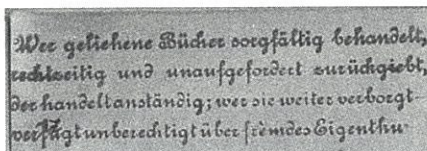 Wer geliehene Bücher sorgfältig behandelt,
rechtzeitig und unaufgefordert zurückgiebt,
der handelt anständig; wer sie weiter verborgt
verfügt unberechtigt über fremdes Eigenthu